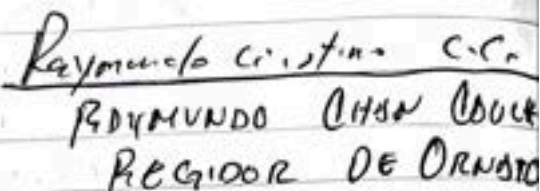 Raymundo Cristino C.C.
RAYMUNDO CHAN CAUCH
REGIDOR DE ORNATO